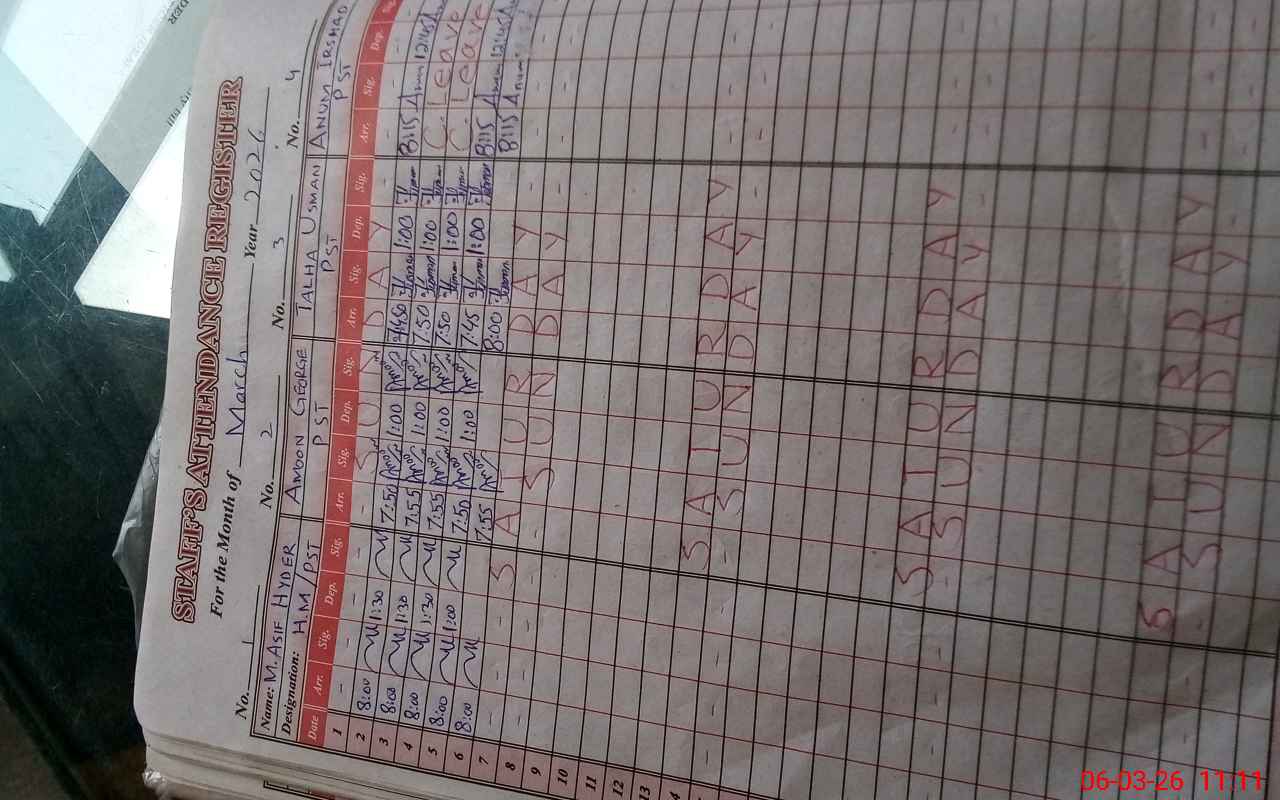 STAFF'S ATTENDANCE REGISTER
For the Month of March Year 2026
No. 1 No. 2 No. 3 No. 4
Name: M. ASIF HYDER AMOON GEORGE TALHA USMAN ANUM IRSHAD
Designation: H.M/PST PST PST PST
Date Arr. Sig. Dep. Sig. Arr. Sig. Dep. Sig. Arr. Sig. Dep. Sig. Arr. Sig. Dep. Sig.
1 - - - - - SUNDAY - - - -
2 8:00 1:30 7:50 1:00 7:50 Usman 1:00 Usman 8:15 Anum 12:45
3 8:00 1:30 7:55 1:00 7:50 Usman 1:00 Usman C. Leave
4 8:00 1:30 7:55 1:00 7:50 Usman 1:00 Usman C. Leave
5 8:00 1:00 7:50 1:00 7:45 Usman 1:00 Usman 8:15 Anum 12:45
6 8:00 7:55 8:00 Usman 8:15 Anum
7 - - SATURDAY - - - -
8 - - - SUNDAY - - - -
9
10
11
12
13
14 - - SATURDAY - - -
SUNDAY
SATURDAY
SUNDAY
SATURDAY
SUNDAY
06-03-26 11:11